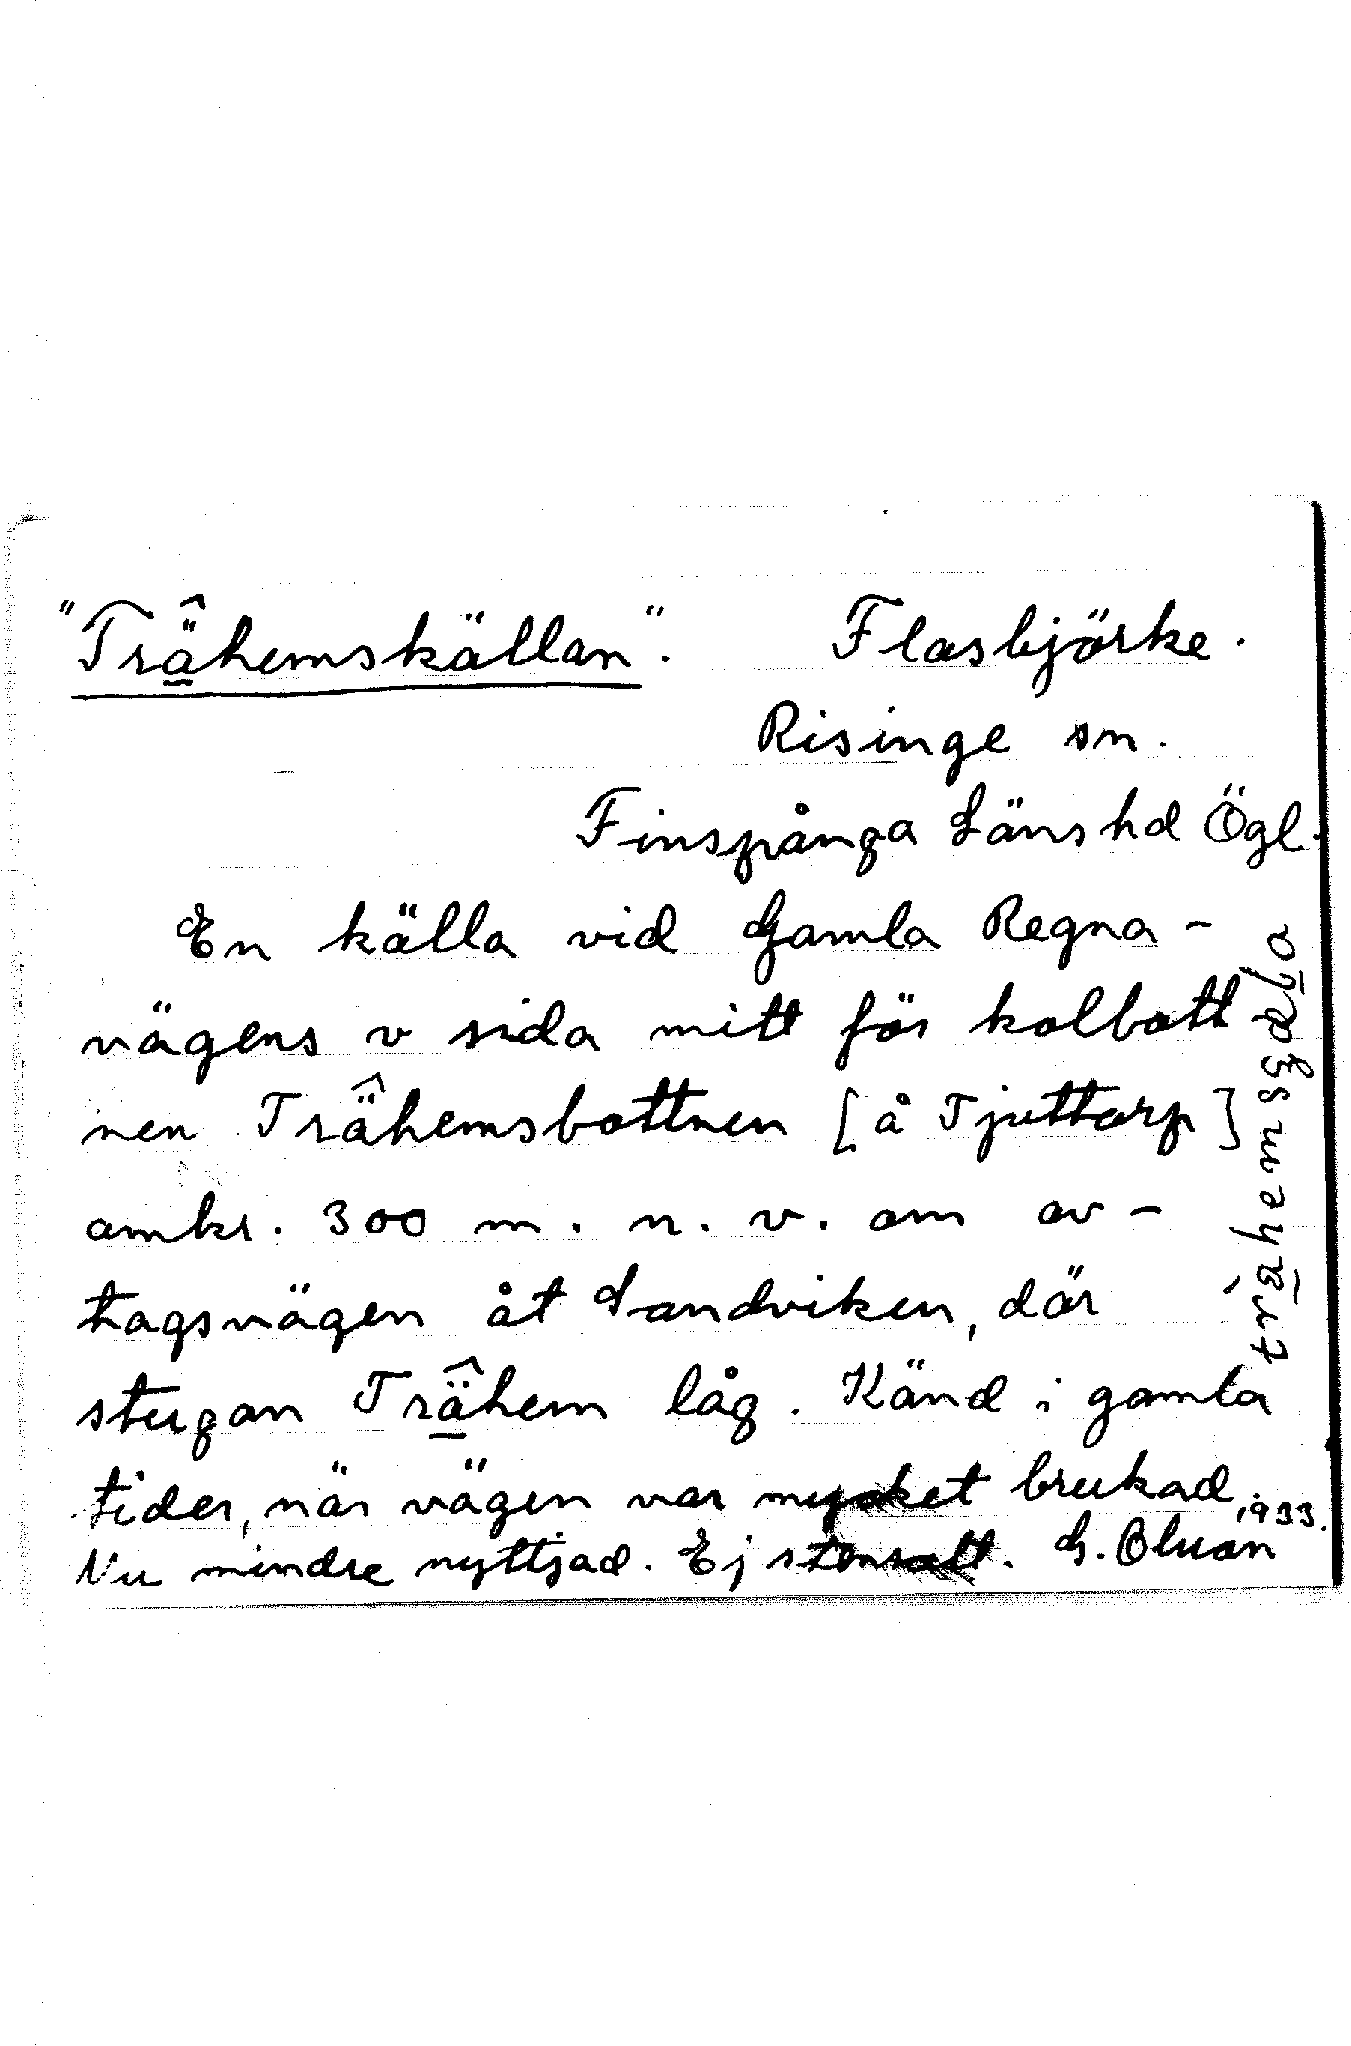 "Trähemskällan". Flasbjörke.
Risinge sn.
Finspånga Länshd Ögl.
En källa vid Gamla Regna-
vägens v sida mitt för kolbott
nen Trähemsbottnen [å Tjuttorp]
omkr. 300 m. n. v. om av-
tagsvägen åt Sandviken, där
stugan Trähem låg. Känd i gamla
tider, när vägen var mycket brukad.
Nu mindre nyttjad. Ej stensatt. G. 1933.